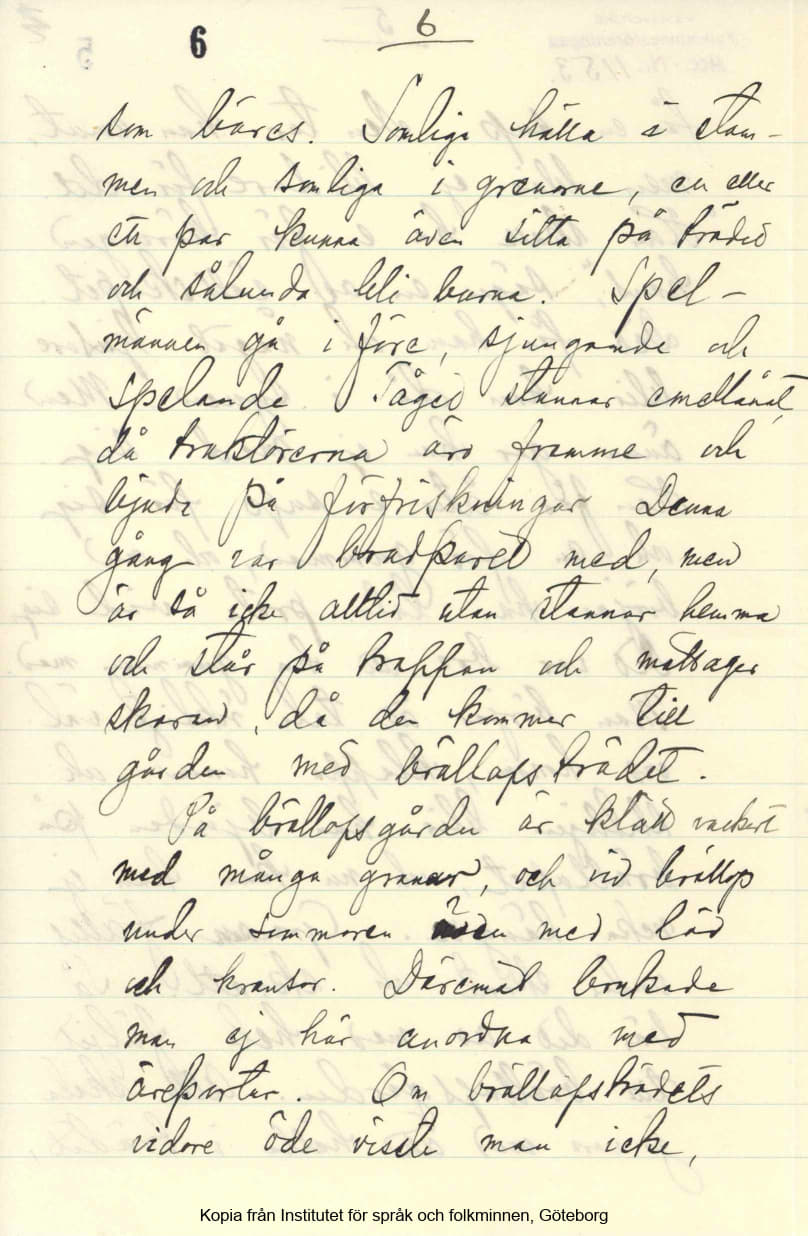 6
6
som bäres. Somliga hålla i stam-
men och somliga i grenarne, en eller
ett par kunna även sitta på trädet
och sålunda bli burna. Spel-
männen gå i före, sjungande och
spelande. Tåget stannar emellanåt,
då traktörerna äro framme och
bjuda på förfriskningar. Denna
gång var brudparet med, men
är så icke alltid utan stannar hemma
och står på trappan och mottager
skaran, då den kommer till
gården med bröllopsträdet.
På bröllopsgården är klätt vackert
med många granar, och vid bröllop
under sommaren även med löv
och kransar. Däremot brukade
man ej här anordna med
äreportar. Om bröllopsträdets
vidare öde visste man icke,
Kopia från Institutet för språk och folkminnen, Göteborg